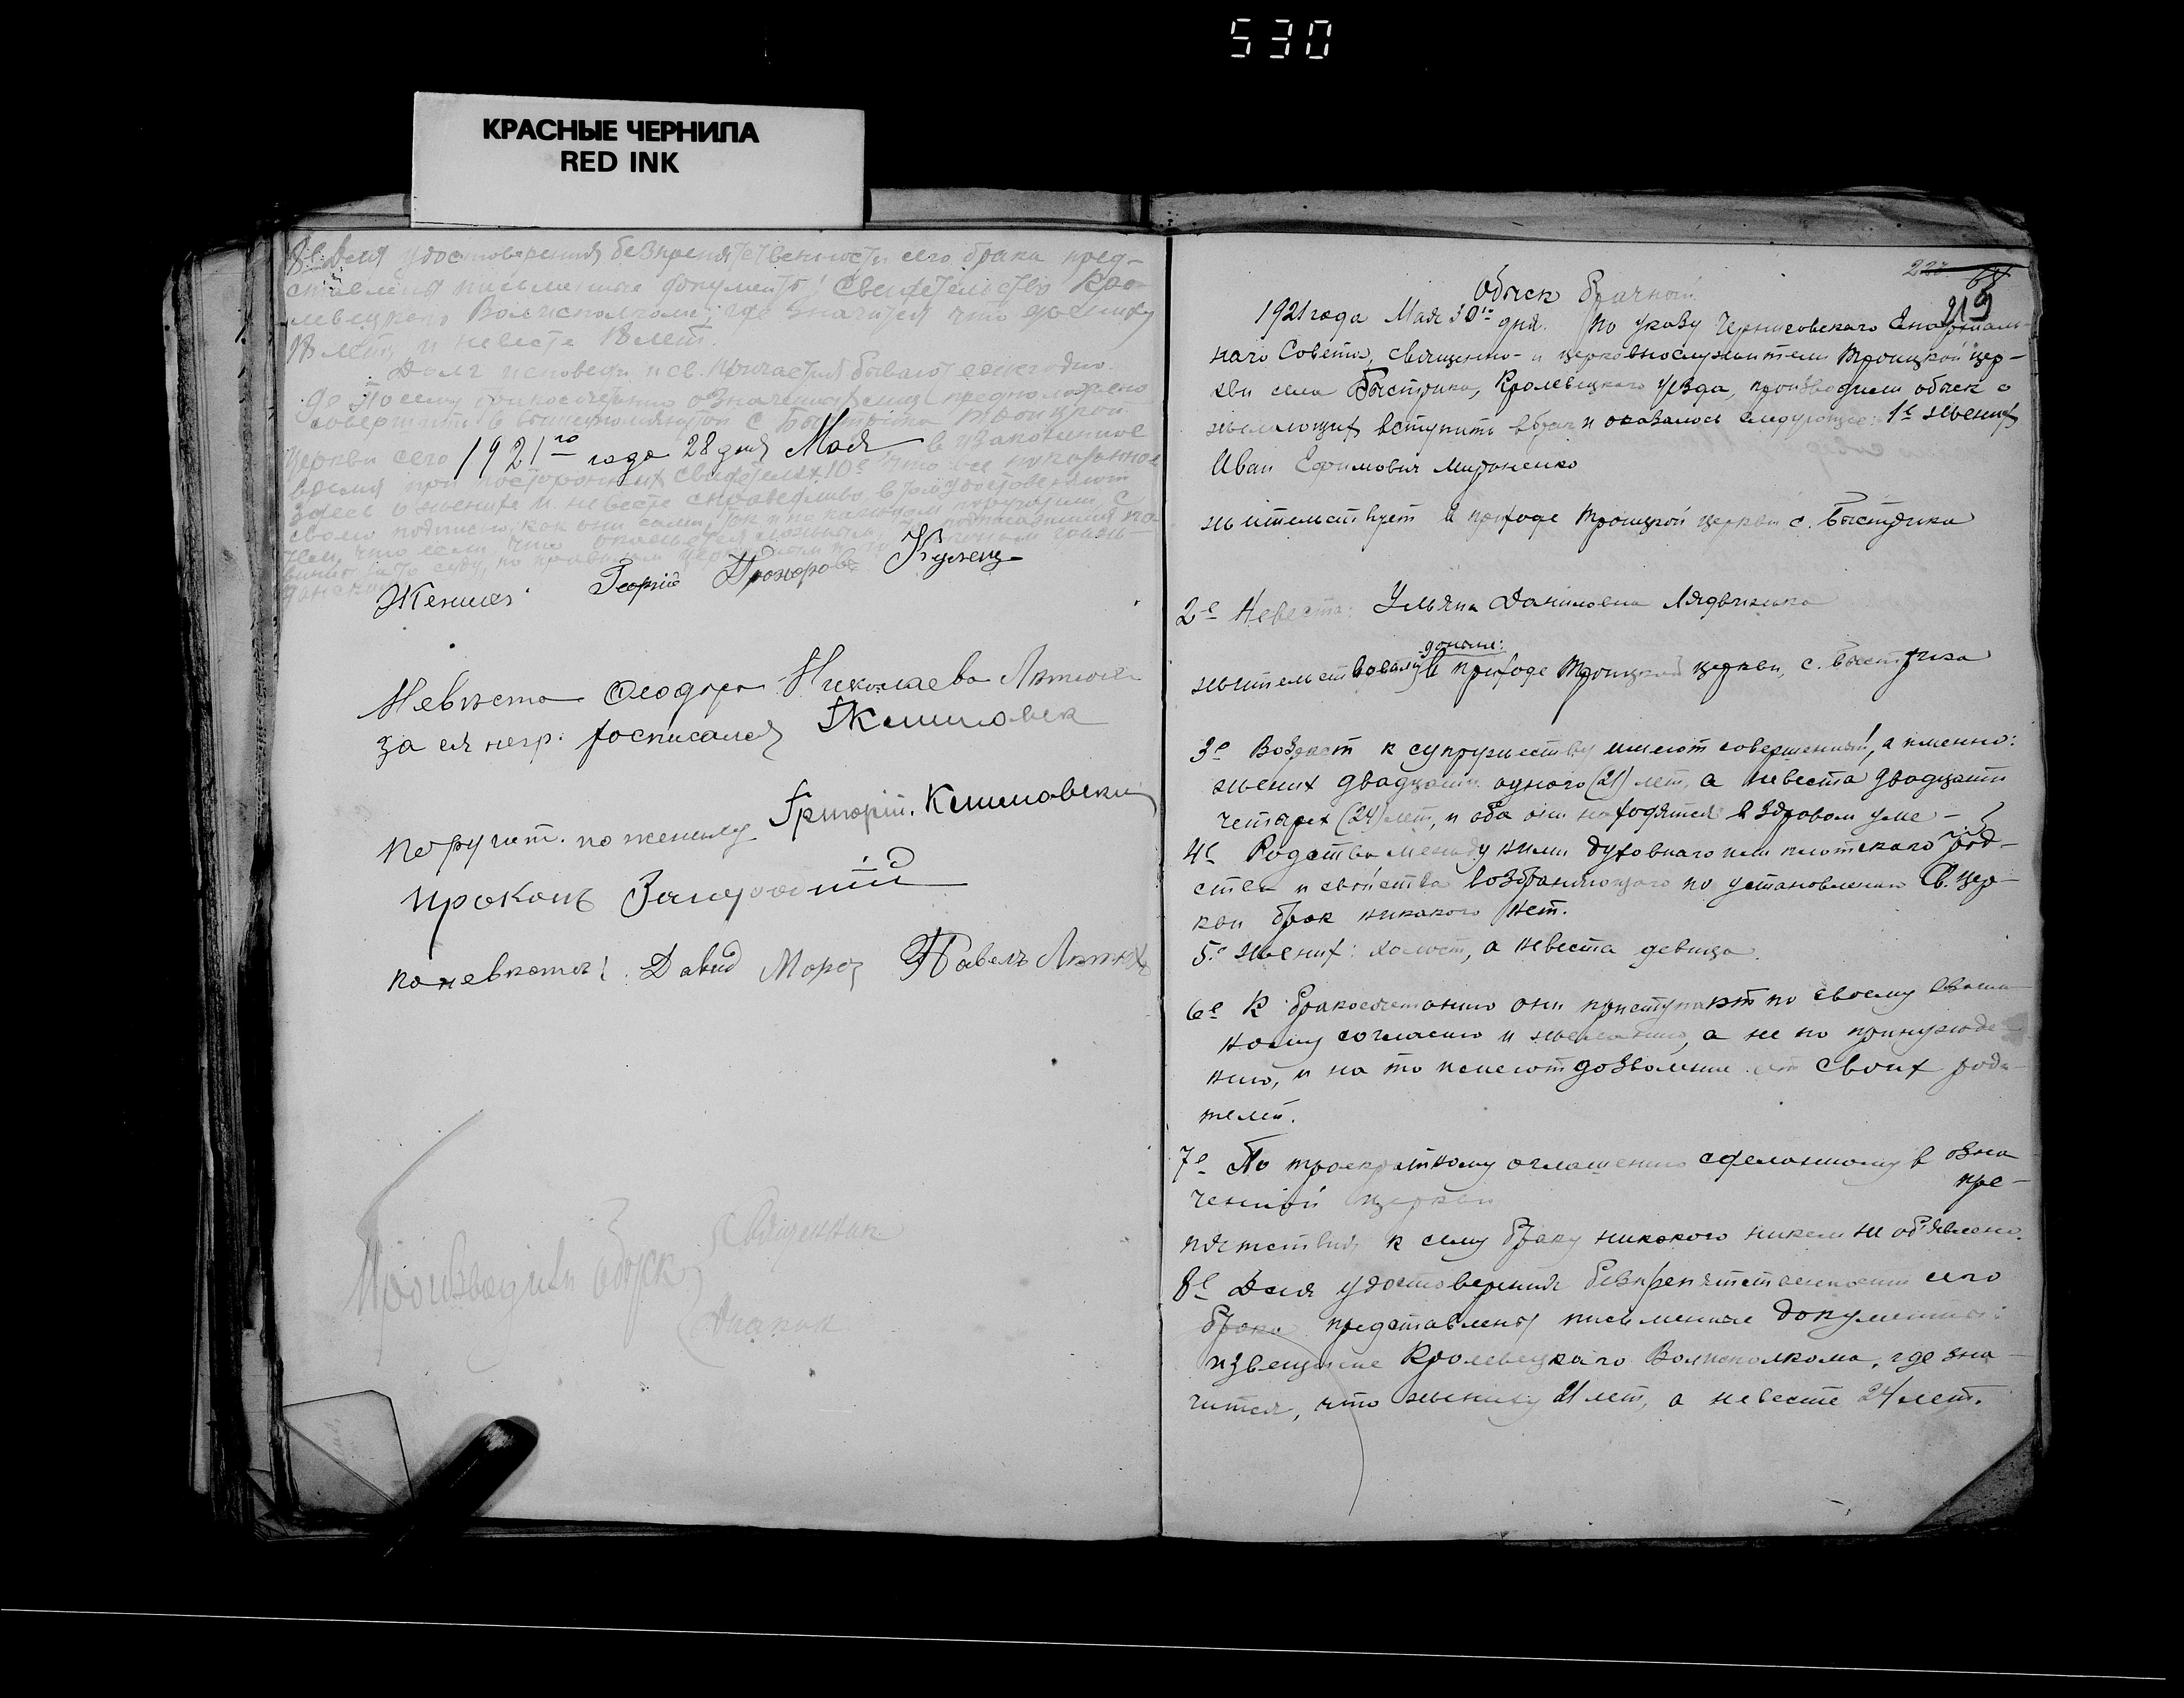 530
КРАСНЫЕ ЧЕРНИЛА
RED INK
8е Для удостоверения безпрепятственности сего брака пред-
ставлены письменные документы: Свидетельство Кро-
левецкого Волисполкома, где значится что жениху
18 лет, и невесте 18 лет.
Долг исповеди и св. Причастия бывают ежегодно.
9е По сему бракосочетание означенных лиц предположено
совершить в вышеупомянутой с. Быстрика Троицкой
церкви сего 1921го года 28 дня Мая в узаконенное
время при посторонних свидетелях 10е Что все показанное
здесь о женихе и невесте справедливо, в том удостоверяют
своею подписью, как они сами, так и по каждом поручители, с
тем, что если что окажется ложным, то подписавшиеся по-
винны суду, по правилам церковным и по граж-
Жених Георгий Прохоров Кужец
Невеста Феодора Николаева Лятюх
За ея негр. росписался Г Климовск
Поручит. по жениху Григорій Климовски
Прокопъ
по невесты: Давид Мороз Павелъ Лятюх
Производили обыск Священник
Диакон
219
Обыск брачный
1921 года Мая 30го дня. По указу Черниговскаго Епархиаль-
наго Совета, священно- и церковнослужители Троицкой цер-
кви села Быстрика, Кролевецкаго уезда, производили обыск о
желающих вступить в брак и оказалось следующее: 1е жених
Иван Ефимович Мироненко
жительствует в приходе Троицкой церкви с. Быстрика
2е Невеста: Ульяна Даниловна
доныне:
жительствовала в приходе Троицкой церкви, с. Быстрика
3е Возраст к супружеству имеют совершенный, а именно:
жених двадцати одного (21) лет, а невеста двадцати
четырех (24) лет, и оба они находятся в здравом уме –
4е Родства между ними духовнаго или плотскаго род-
ства и свойства возбраняющаго по установлению Св. Цер-
кви брак никакого нет.
5е жених: холост, а невеста девица.
6е К бракосочетанию они приступают по своему взаим-
ному согласию и желанию, а не по принужде-
нию, и на то имеют дозволение от своих роди-
телей.
7е По троекратному оглашению сделанному в озна-
ченной церкви пре-
пятствия к сему браку никакого никем не объявлено.
8е Для удостоверения безпрепятственности сего
брака представлены письменные документы:
извещение Кролевецкаго Волисполкома, где зна-
чится, что жениху 21 лет, а невесте 24 лет.